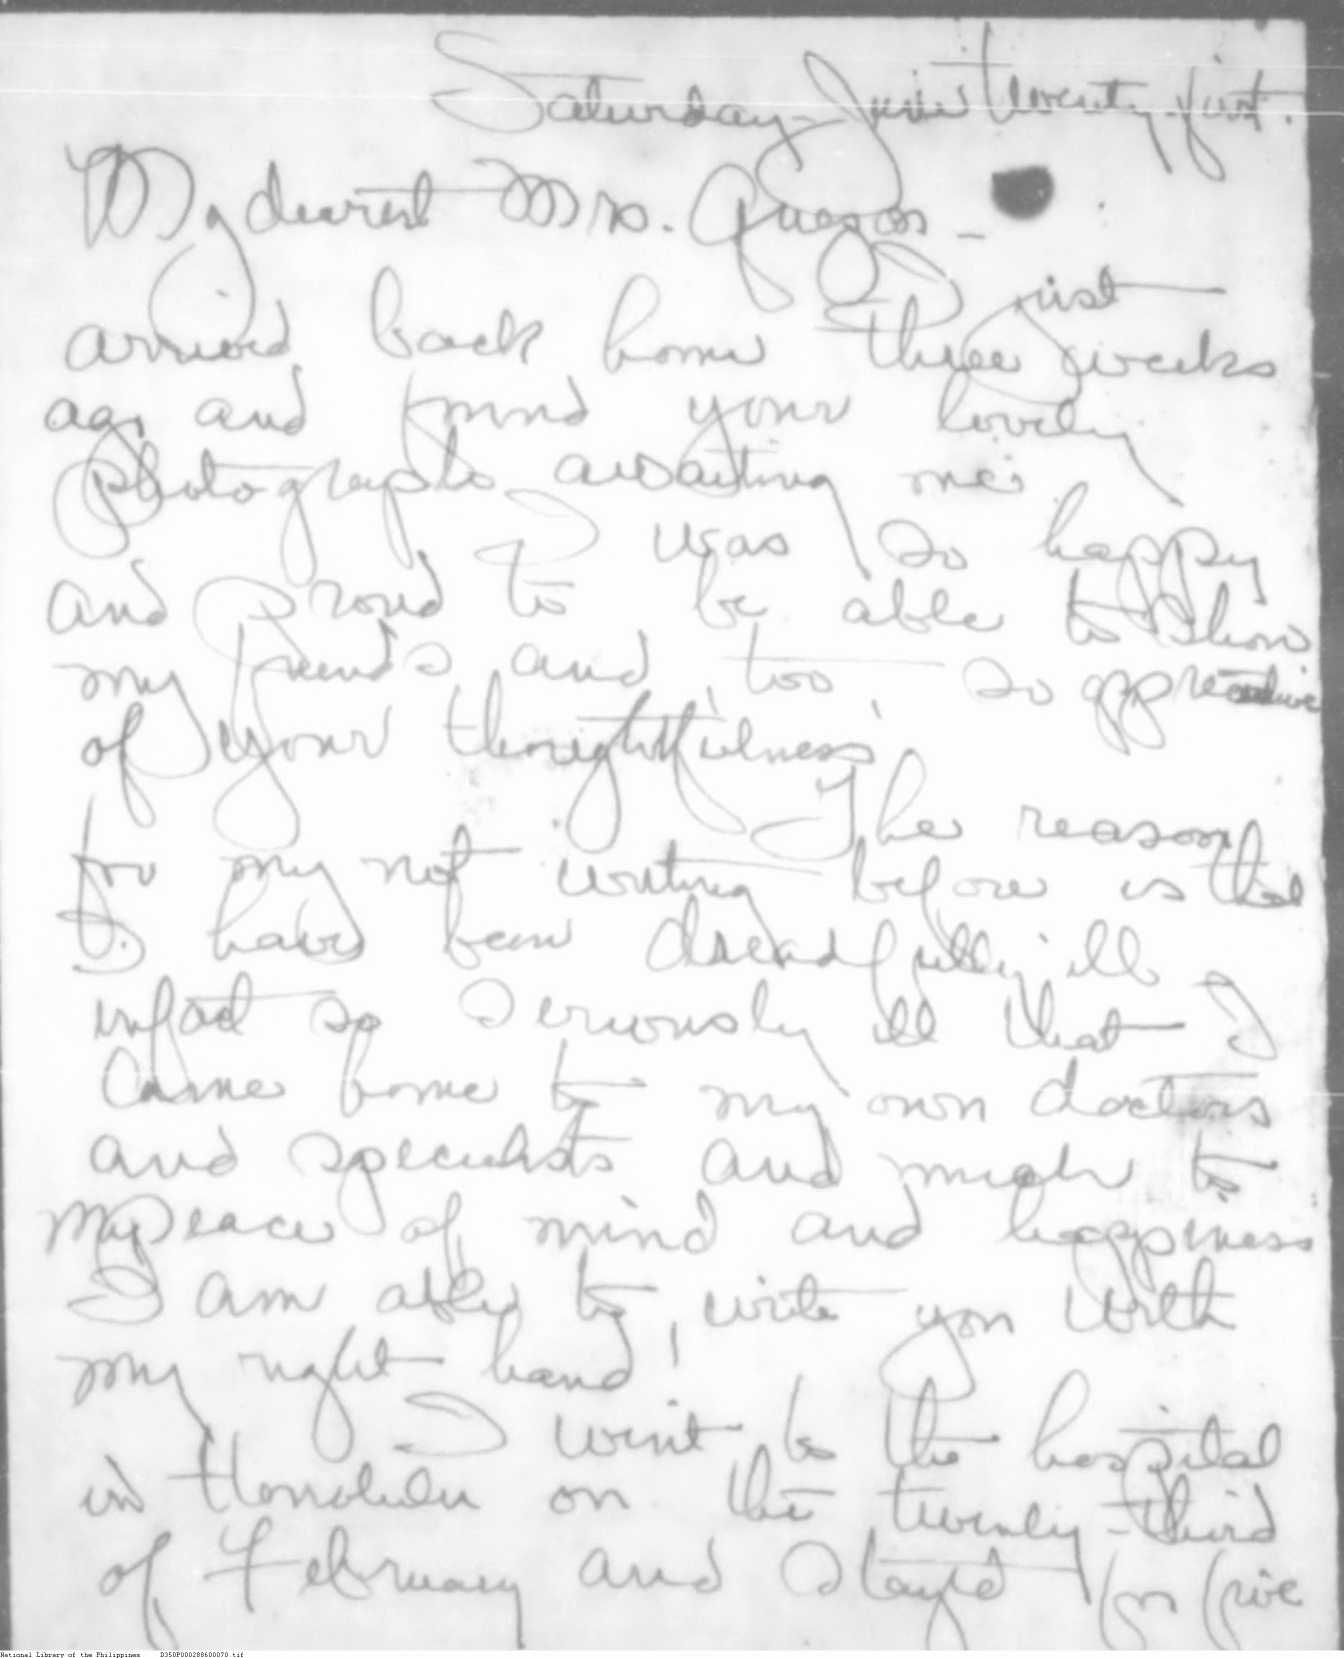 Saturday - June twenty-first.
My dearest Mrs. Quezon -
I just
arrived back home three weeks
ago and found your lovely
photographs awaiting me.
I was so happy
and proud to be able to show
my friends and, too, so appreciative
of your thoughtfulness.
The reason
for my not writing before is that
I have been dreadfully ill
infact so seriously ill that I
came home to my own doctors
and specialists and much to
my peace of mind and happiness
I am able to write you with
my right hand!
I went to the hospital
in Honolulu on the twenty-third
of February and stayed for five
National Library of the Philippines D350P000288600070.tif